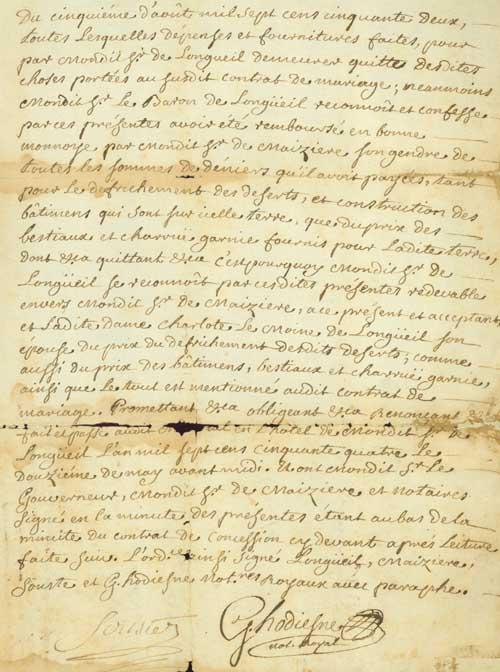 Du cinquiéme d'août mil sept cens cinquante deux,
toutes Lesquelles dépenses et fournitures faites, pour
par Mondit Sr. de Longueil demeurer quitte desdites
choses portées au susdit contrat de mariage; neanmoins
Mondit Sr. Le Baron de Longüeil reconnoit et confesse
par ces presentes avoir été remboursé en bonne
monnoye par Mondit Sr. de Maiziere son gendre de
toutes les sommes de déniers qu'il avoit payées, tant
pour Le défrichement des deserts, et construction des
bâtimens qui sont sur icelle terre, que du prix des
bestiaux et charruë garnie fournis pour Ladite terre,
dont &ca quittant &ca c'est pourquoy Mondit Sr. de
Longüeil se reconnoit par cesdites présentes redevable
envers Mondit Sr. de Maiziere, a ce présent et acceptant,
et Ladite dame Charlote Le Moine de Longüeil son
épouse du prix du défrichement desdits deserts; comme
aussi du prix des bâtimens, bestiaux et charruë garnie,
ainsi que Le tout est mentionné audit contrat de
mariage. Promettant &ca obligeant &ca Renonçant &ca
fait et passé en L'hôtel de Mondit Sr. de
Longueil L'an mil sept cens cinquante quatre Le
douziéme de may avant midi. Et ont Mondit Sr. Le
Gouverneur, Mondit Sr. de Maiziere et Notaires
signé en la minute des présentes étant au bas de la
minute du contrat de concession cy devant aprés Lecture
faite suiv. L'ordce. ainsi signé Longüeil, Maiziere,
Souste et G. hodiesne Not.res Royaux avec paraphe.
Souste G. hodiesne
not. royal